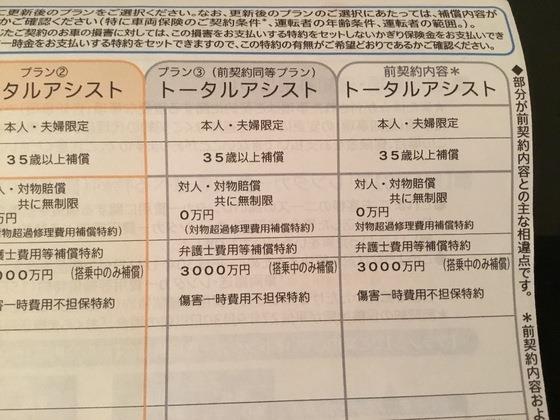 更新後のプランをご選択ください。なお、更新後のプランのご選択にあたっては、補償内容が
かご確認ください(特に車両保険のご契約条件*、運転者の年齢条件、運転者の範囲。)。
たご契約のお車の損害に対しては、この損害をお支払いする特約をセットしないかぎり保険金をお支払いでき
一時金をお支払いする特約をセットできますので、この特約の有無がご希望どおりであるかご確認ください。
プラン②
タルアシスト
本人・夫婦限定
35歳以上補償
対人・対物賠償
共に無制限
万円
対物超過修理費用補償特約)
護士費用等補償特約
000万円 (搭乗中のみ補償)
害一時費用不担保特約
プラン③(前契約同等プラン)
トータルアシスト
本人・夫婦限定
35歳以上補償
対人・対物賠償
共に無制限
0万円
(対物超過修理費用補償特約)
弁護士費用等補償特約
3000万円 (搭乗中のみ補償)
傷害一時費用不担保特約
前契約内容*
トータルアシスト
本人・夫婦限定
35歳以上補償
対人・対物賠償
共に無制限
0万円
(対物超過修理費用補償特約)
弁護士費用等補償特約
3000万円 (搭乗中のみ補償)
傷害一時費用不担保特約
◆部分が前契約内容との主な相違点です。 *前契約内容お